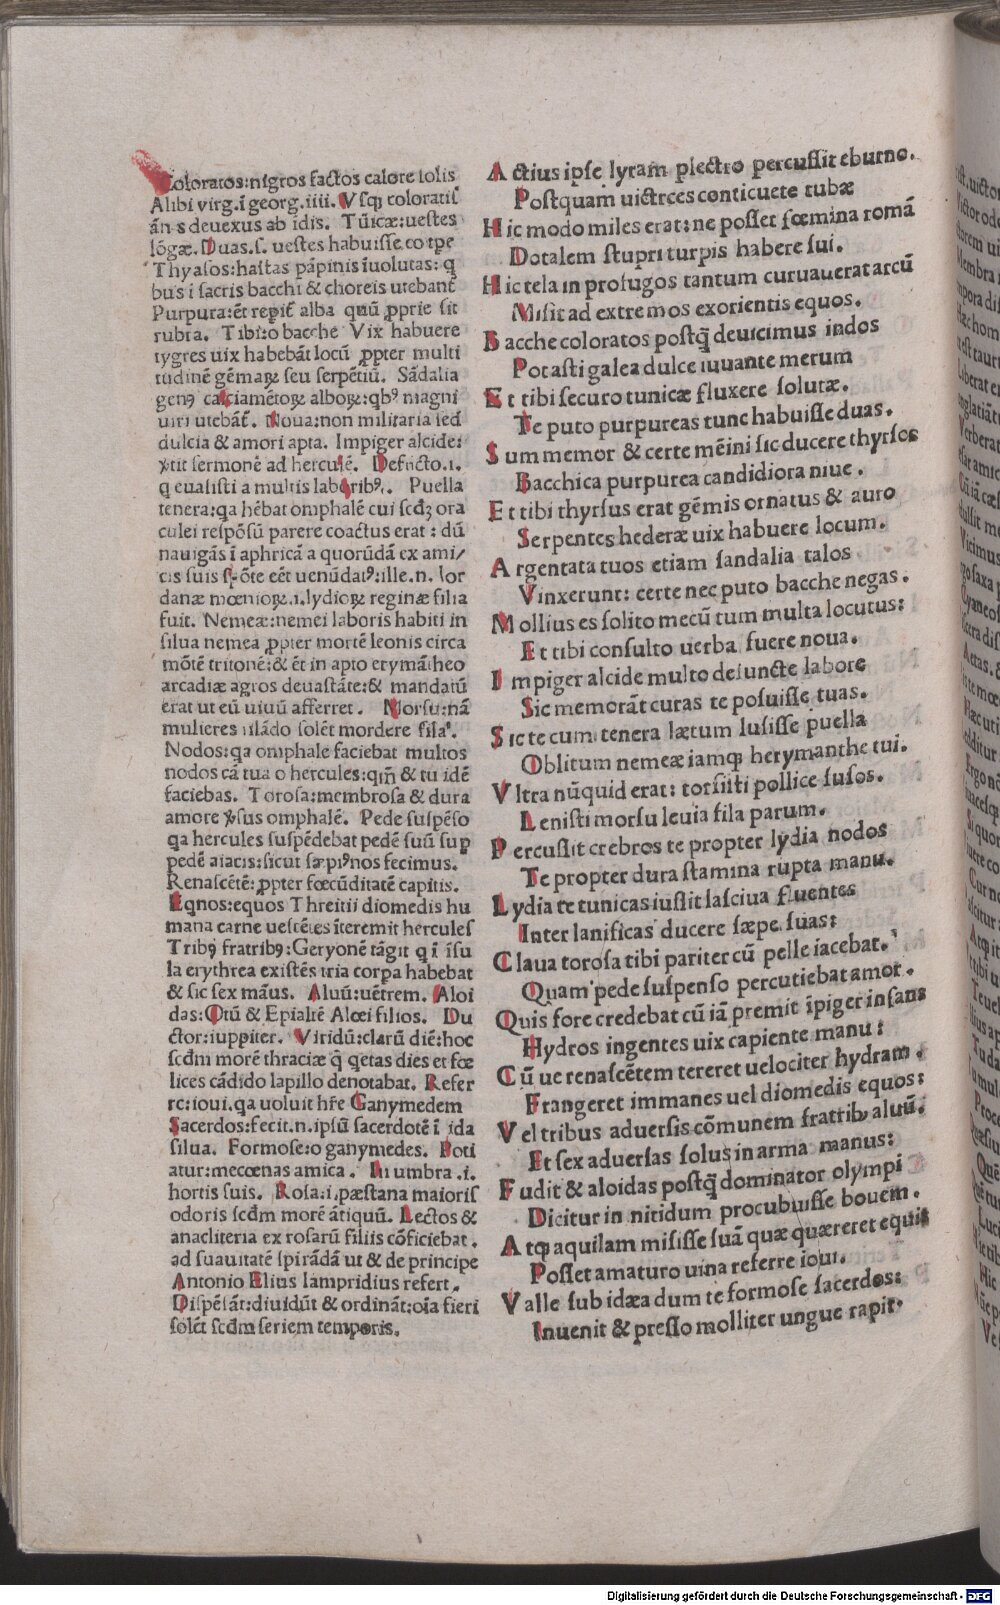 Coloratos:nigros factos calore solis
Alibi virg.ī georg.iiii. Vsqȝ coloratis
deuexus ab idis. Tūicæ:uestes
lōgæ. Duas.s. uestes habuisse corpe
Thyasos:hastas pāpinis īuolutas: q
bus i sacris bacchi & choreis utebant̄
Purpura:ēt repit̄ alba quū ꝓprie sit
rubra. Tibi:o bacche Vix habuere
tygres uix habebāt locū ꝓpter multi
tudinē gēmaꝝ seu serpētiū. Sādalia
genꝰ calciamētoꝝ alboꝝ:qbꝰ magni
uiri utebāt̄. Noua:non militaria sed
dulcia & amori apta. Impiger alcide:
ꝟtit sermonē ad herculē. Defūcto.i.
q euasisti a multis laboribꝰ. Puella
tenera:qa hēbat omphalē cui scdȝ ora
culei respōsū parere coactus erat : dū
nauigās ī aphricā a quorūdā ex ami/
cis suis spōte eēt uenūdatꝰ:ille.n. Ior
danæ mœnioꝝ.i.lydioꝝ reginæ filia
fuit. Nemeæ:nemei laboris habiti in
silua nemea ꝓpter mortē leonis circa
mōtē tritonē:& ēt in apto erymātheo
arcadiæ agros deuastāte:& mandatū
erat ut eū uiuū afferret. Morsu:nā
mulieres filādo solēt mordere fila.
Nodos:qa omphale faciebat multos
nodos cā tua o hercules:qm̄ & tu idē
faciebas. Torosa:membrosa & dura
amore ꝟsus omphalē. Pede suspēso
qa hercules suspēdebat pedē suū sup
pedē aiacis:sicut sæpiꝰ nos fecimus.
Renascētē:ꝓpter fœcūditatē capitis.
Eqnos:equos Threitii diomedis hu
mana carne uescētes iteremit hercules
Tribꝰ fratribꝰ:Geryonē tāgit q ī īsu
la erythrea existēs tria corpa habebat
& sic sex māus. Aluū:uētrem. Aloi
das:Otū & Epialtē Aloei filios. Du
ctor:iuppiter. Viridū:clarū diē:hoc
scd̄m morē thraciæ q̄ qetas dies et fœ
lices cādido lapillo denotabat. Refer
re:ioui.qa uoluit hr̄e Ganymedem
Sacerdos:fecit.n.ipsū sacerdotē ī ida
silua. Formose:o ganymedes. Poti
atur:mecœnas amica. In umbra .i.
hortis suis. Rosa:i.pæstana maioris
odoris scd̄m morē ātiquū. Lectos &
anacliteria ex rosarū filiis cōficiebat.
ad suauitatē spirādā ut & de principe
Antonio Elius lampridius refert.
Dispēsāt:diuidūt & ordināt:oīa fieri
solēt scd̄m seriem temporis.
Actius ipse lyram plectro percussit eburno.
Postquam uictrces conticuere tubæ
Hic modo miles erat: ne posset fœmina romā
Dotalem stupri turpis habere sui.
Hic tela in profugos tantum curuauerat arcū
Misit ad extremos exorientis equos.
Bacche coloratos postq̄ deuicimus indos
Potasti galea dulce iuuante merum
Et tibi securo tunicæ fluxere solutæ.
Te puto purpureas tunc habuisse duas.
Sum memor & certe mēini sic ducere thyrsos
Bacchica purpurea candidiora niue.
Et tibi thyrsus erat gēmis ornatus & auro
Serpentes hederæ uix habuere locum.
Argentata tuos etiam sandalia talos
Vinxerunt: certe nec puto bacche negas.
Mollius es solito mecū tum multa locutus:
Et tibi consulto uerba fuere noua.
Impiger alcide multo defuncte labore
Sic memorāt curas te posuisse tuas.
Sic te cum tenera lætum lusisse puella
Oblitum nemeæ iamqȝ herymanthe tui.
Vltra nūquid erat: torsisti pollice fusos.
Lenisti morsu leuia fila parum.
Percussit crebros te propter lydia nodos
Te propter dura stamina rupta manu.
Lydia te tunicas iussit lasciua fluentes
Inter lanificas ducere sæpe suas:
Claua torosa tibi pariter cū pelle iacebat.
Quam pede suspenso percutiebat amor.
Quis fore credebat cū iā premit īpiger infans
Hydros ingentes uix capiente manu:
Cū ue renascētem tereret uelociter hydram.
Frangeret immanes uel diomedis equos:
Vel tribus aduersis cōmunem fratribꝰ aluū.
Et sex aduersas solus in arma manus:
Fudit & aloidas postq̄ dominator olympi
Dicitur in nitidum procubuisse bouem.
Atqȝ aquilam misisse suā quæ quæreret equis
Posset amaturo uina referre ioui.
Valle sub idæa dum te formose sacerdos:
Inuenit & presso molliter ungue rapit.
Digitalisierung gefördert durch die Deutsche Forschungsgemeinschaft - DFG